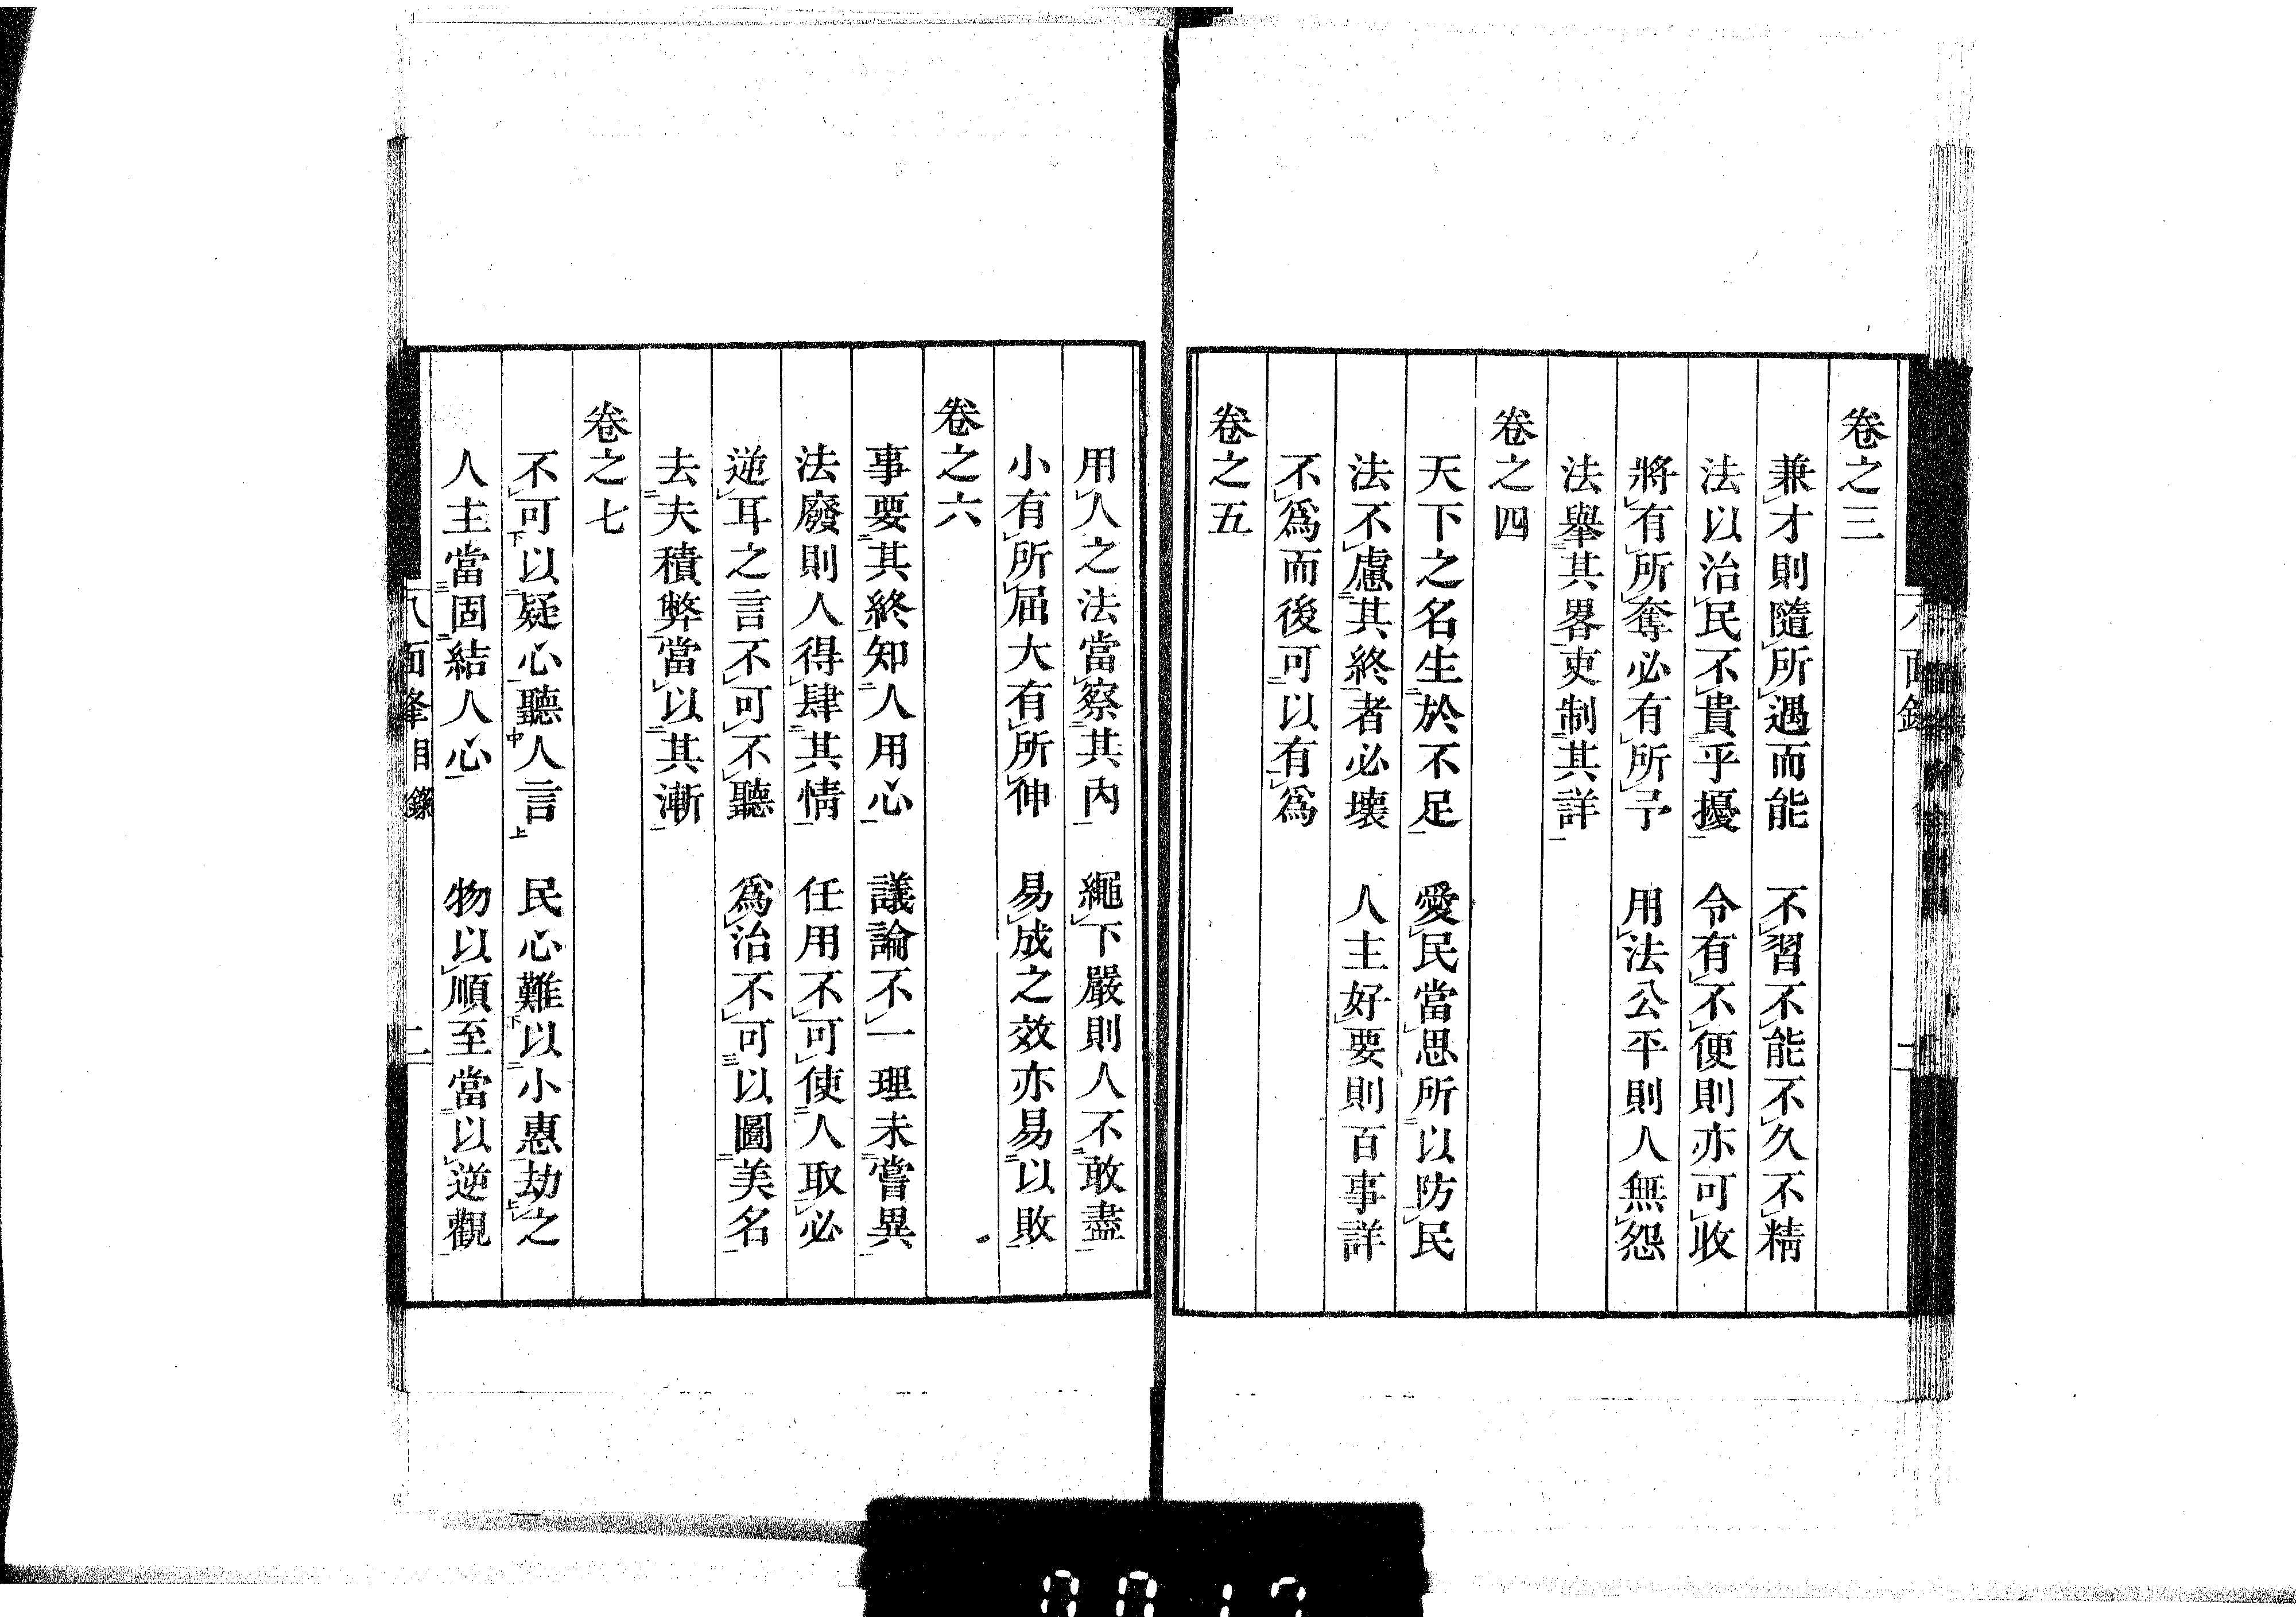 卷之三
兼才則隨所遇而能　不習不能不久不精
法以治民不貴乎擾　令有不便則亦可收
將有所奪必有所予　用法公平則人無怨
法舉其畧吏制其詳
卷之四
天下之名生於不足　愛民當思所以防民
法不慮其終者必壞　人主好要則百事詳
不爲而後可以有爲
卷之五
用人之法當察其內　繩下嚴則人不敢盡
小有所屈大有所伸　易成之效亦易以敗
卷之六
事要其終知人用心　議論不一理未嘗異
法廢則人得肆其情　任用不可使人取必
逆耳之言不可不聽　爲治不可以圖美名
去夫積弊當以其漸
卷之七
不可以疑心聽人言　民心難以小惠劫之
人主當固結人心　物以順至當以逆觀
八面鋒目錄　二